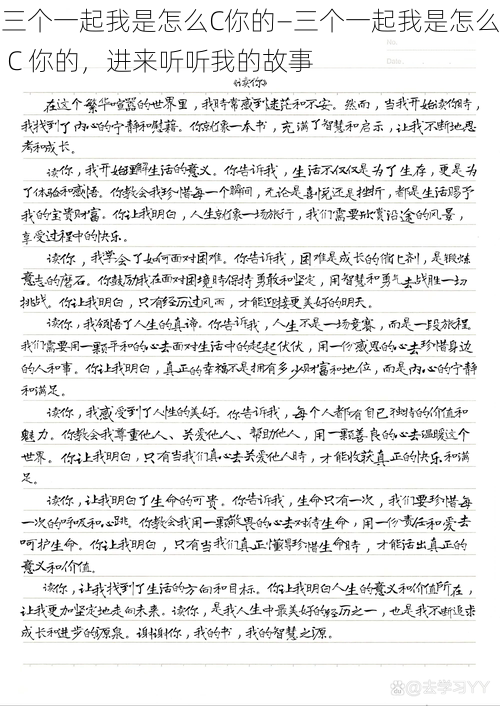 三个一起我是怎么C你的—三个一起我是怎么
C 你的，进来听听我的故事
No.
Date.
《读你》
在这个繁华喧嚣的世界里，我时常感到迷茫和不安。然而，当我开始读你时，
我找到了内心的宁静和慰藉。你就像一本书，充满了智慧和启示，让我不断地思
考和成长。
读你，我开始理解生活的意义。你告诉我，生活不仅仅是为了生存，更是为
了体验和感悟。你教会我珍惜每一个瞬间，无论是喜悦还是挫折，都是生活赐予
我的宝贵财富。你让我明白，人生就像一场旅行，我们需要欣赏沿途的风景，
享受过程中的快乐。
读你，我学会了如何面对困难。你告诉我，困难是成长的催化剂，是锻炼
意志的磨石。你鼓励我在面对困境时保持勇敢和坚定，用智慧和勇气去战胜一切
挑战。你让我明白，只有经历过风雨，才能迎接更美好的明天。
读你，我领悟了人生的真谛。你告诉我，人生不是一场竞赛，而是一段旅程。
我们需要用一颗平和的心去面对生活中的起起伏伏，用一份感恩的心去珍惜身边
的人和事。你让我明白，真正的幸福不是拥有多少财富和地位，而是内心的宁静
和满足。
读你，我感受到了人性的美好。你告诉我，每个人都有自己独特的价值和
魅力。你教会我尊重他人、关爱他人、帮助他人，用一颗善良的心去温暖这个
世界。你让我明白，只有当我们真心去关爱他人时，才能收获真正的快乐和满
足。
读你，让我明白了生命的可贵。你告诉我，生命只有一次，我们要珍惜每
一次的呼吸和心跳。你教会我用一颗敬畏的心去对待生命，用一份责任和爱去
呵护生命。你让我明白，只有当我们真正懂得珍惜生命时，才能活出真正的
意义和价值。
读你，让我找到了生活的方向和目标。你让我明白人生的意义和价值所在，
让我更加坚定地走向未来。读你，是我人生中最美好的经历之一，也是我不断追求
成长和进步的源泉。谢谢你，我的书，我的智慧之源。
@去学习YY